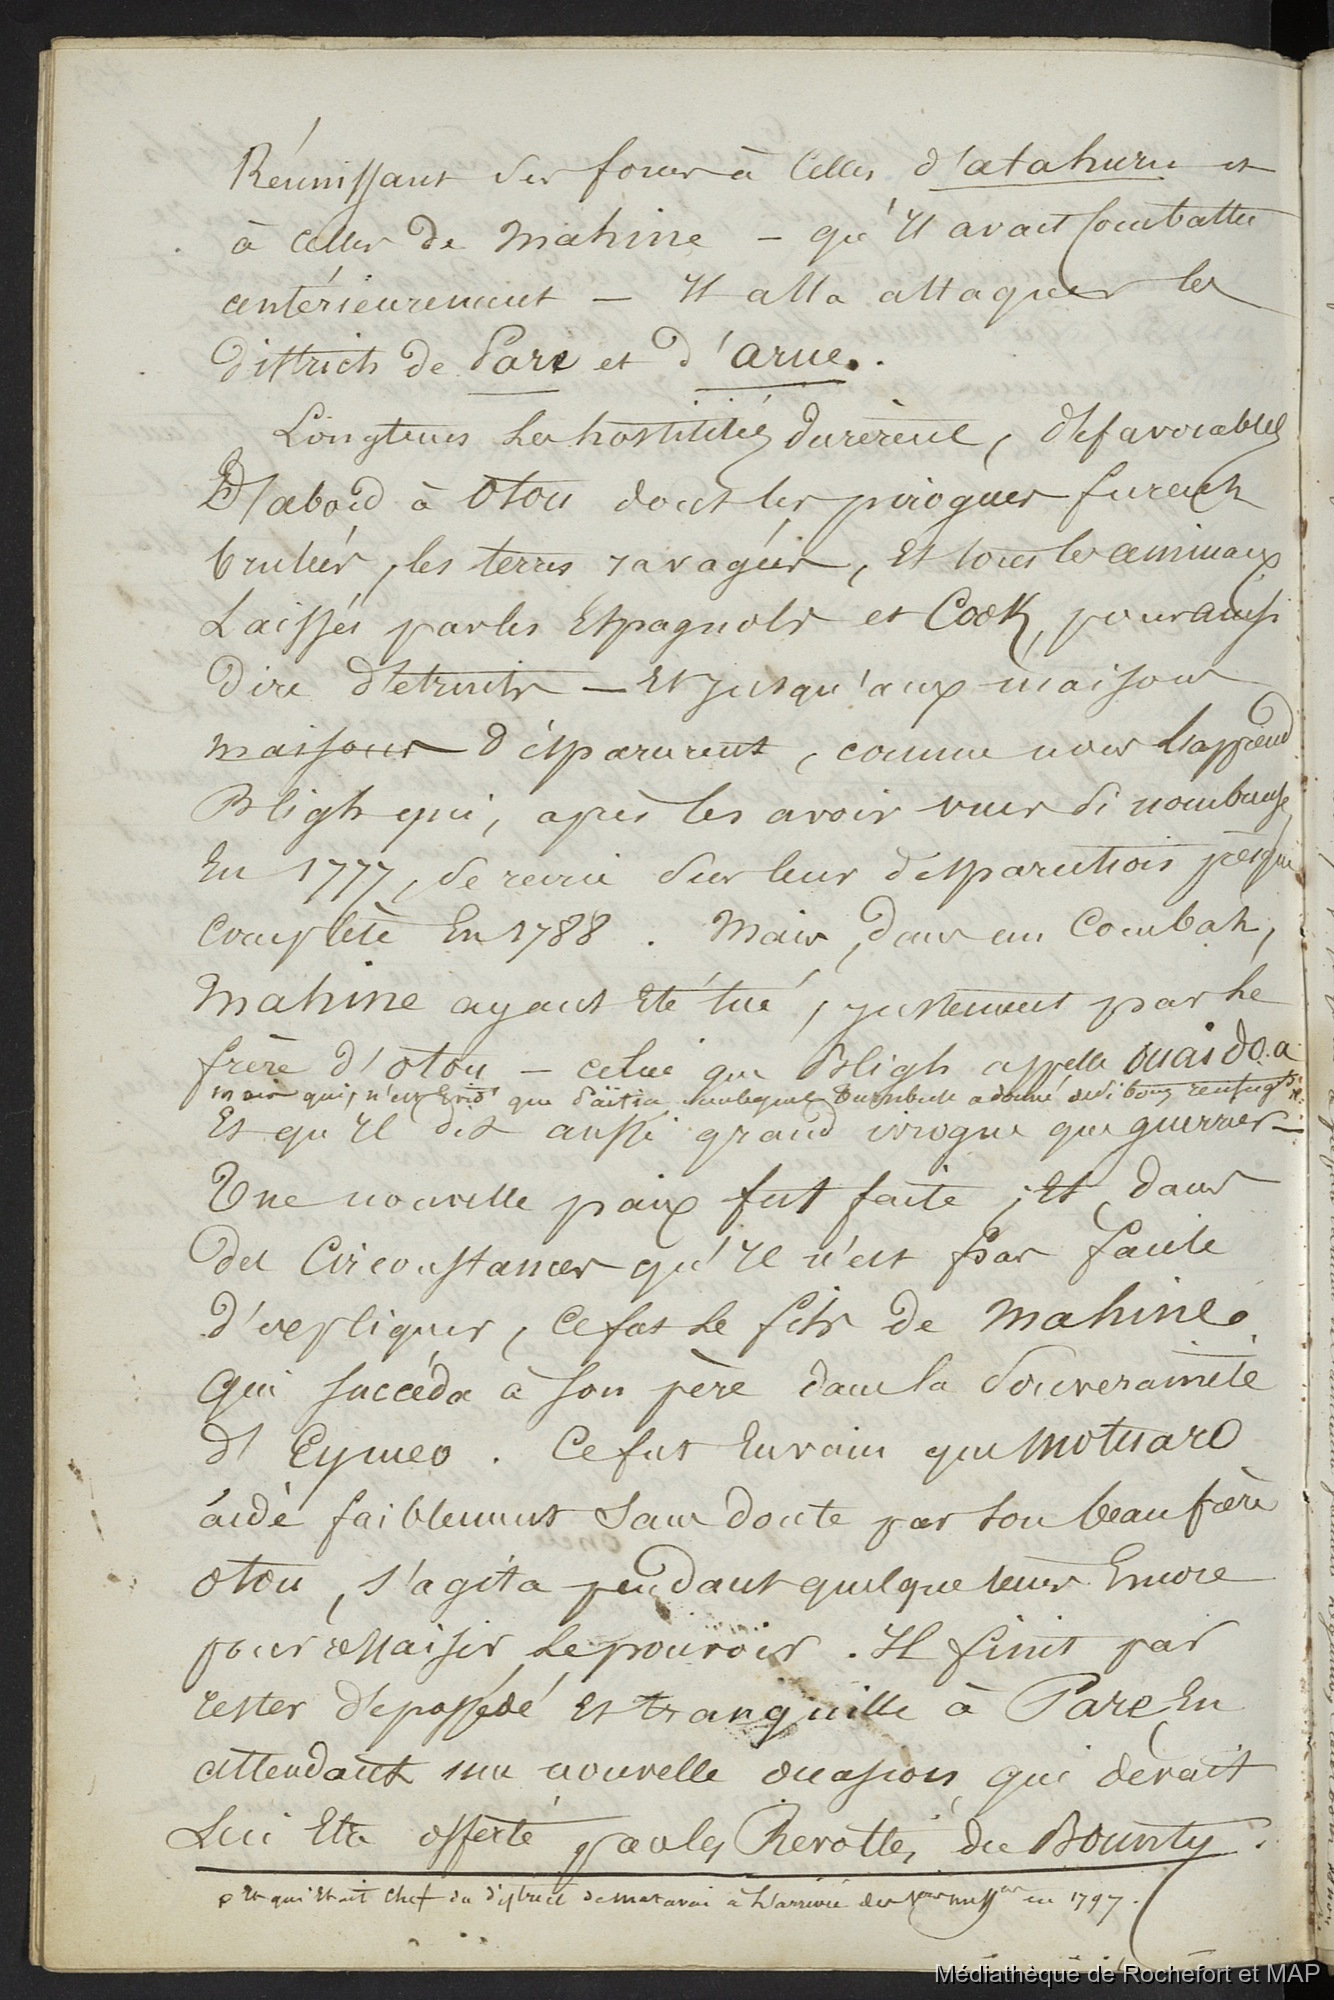 Réunissant ses forces à celles d'atahuru et
à celles de Mahine – qu'il avait combattu
antérieurement – il alla attaquer les
districts de Pare et d'arue.
Longtems les hostilités durèrent, défavorables
D'abord à Otou dont les pirogues furent
brulées, les terres ravagées, et tous les animaux
Laissés par les Espagnols et Cook, pour ainsi
Dire détruits – Et jusqu'aux maisons
maisons disparurent, comme nous l'apprend
Bligh qui, après les avoir vues si nombreuses
En 1777, se récrie sur leur disparution presque
Complète En 1788. Mais, dans un Combat,
Mahine ayant été tué, justement par le
frère d'Otou – celui que Bligh appelle Ouaidoa
mais qui, n'est que Païtia Turnbull a donné de si bons renseig.ts
Et qu'il dit aussi grand ivrogne que guerrier –
Une nouvelle paix fut faite ; Et, dans
des Circonstances qu'il n'est pas facile
d'expliquer, ce fut le fils de Mahine
qui succéda à son père dans la Souveraineté
d'Eymeo. Ce fut Envain que Motuaro
aidé faiblement sans doute par son beau frère
Otou, s'agita pendant quelque tems Encore
pour ressaisir le pouvoir. Il finit par
rester dépossédé Et tranquille à Pare En
attendant une nouvelle occasion, qui devait
Lui Etre offerte par les Révoltés du Bounty.
Et qui Etait Chef du district de Matavai à L'arrivée des 1ers miss.res en 1797.
Médiathèque de Rochefort et MAP